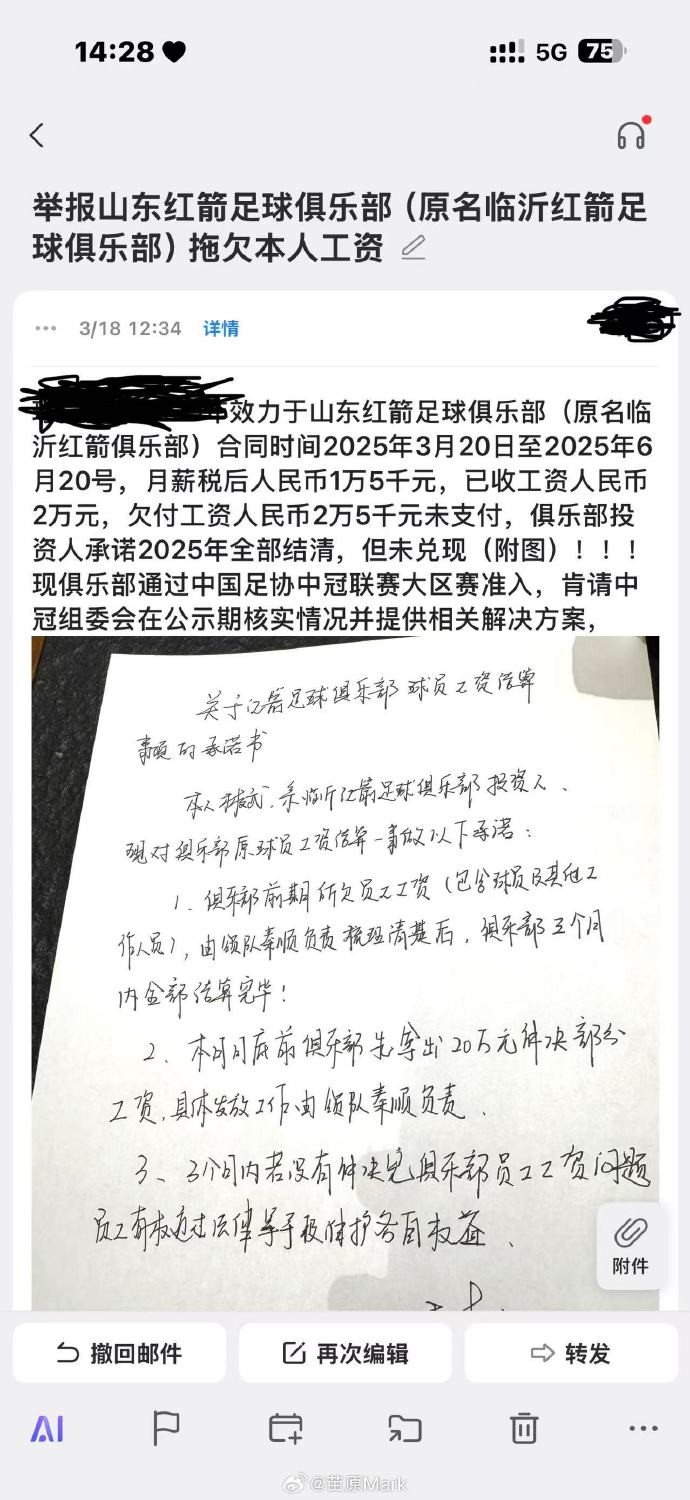 14:28
5G
75
举报山东红箭足球俱乐部（原名临沂红箭足
球俱乐部）拖欠本人工资
3/18 12:34 详情
效力于山东红箭足球俱乐部（原名临
沂红箭俱乐部）合同时间2025年3月20日至2025年6
月20号，月薪税后人民币1万5千元，已收工资人民币
2万元，欠付工资人民币2万5千元未支付，俱乐部投
资人承诺2025年全部结清，但未兑现（附图）！！！
现俱乐部通过中国足协中冠联赛大区赛准入，肯请中
冠组委会在公示期核实情况并提供相关解决方案，
关于红箭足球俱乐部球员工资结算
事项的承诺书
本人 系临沂红箭足球俱乐部投资人、
现对俱乐部原球员工资结算一事做以下承诺：
1、俱乐部前期所欠员工工资（包含球员及其他工
作人员），由领队秦顺负责梳理清楚后，俱乐部三个月
内全部结算完毕！
2、本月月底前俱乐部先拿出20万元解决部分
工资，具体发放工作由领队秦顺负责、
3、3个月内若没有解决完俱乐部员工工资问题
员工有权通过法律等手段维护各自权益、
附件
撤回邮件
再次编辑
转发
AI
@苗原Mark